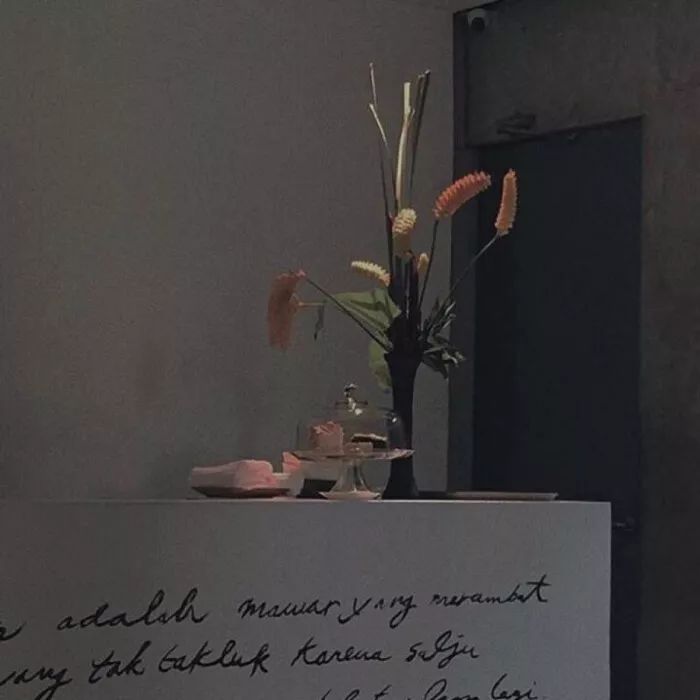 adalah mawar yang merambat
yang tak takluk karena salju
lagi